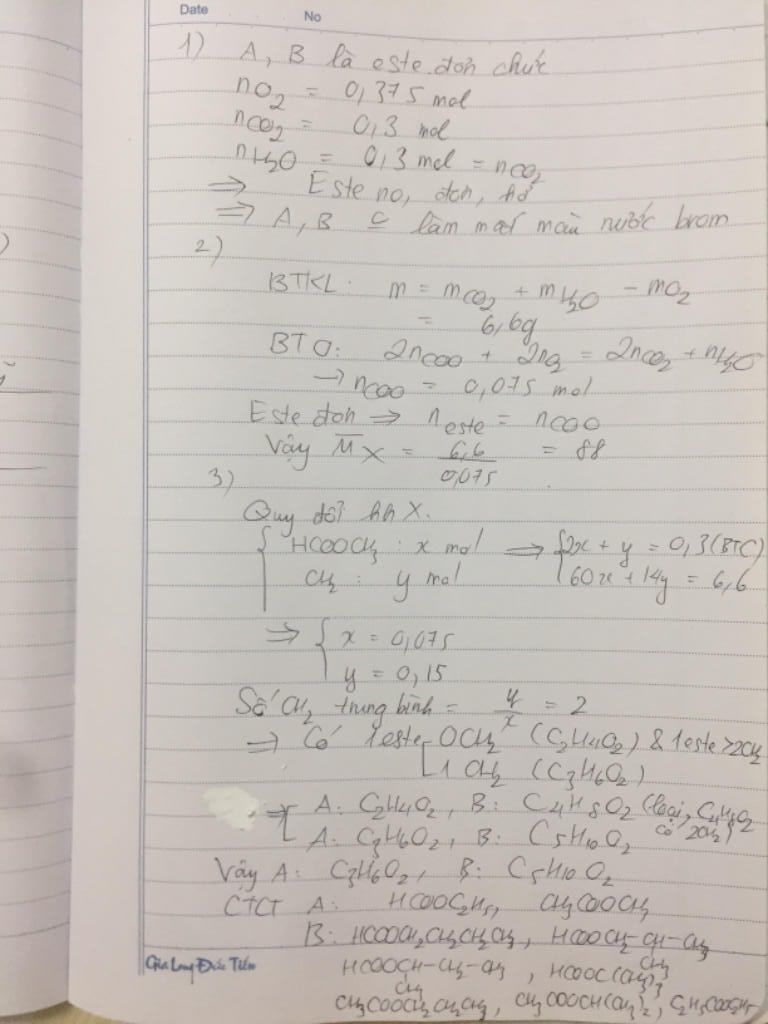 Date
No
1) A, B là este đơn chức
nO2 = 0,375 mol
nCO2 = 0,3 mol
nH2O = 0,3 mol = nCO2
⇒ Este no, đơn, hở
⇒ A, B làm mất màu nước brom
2)
BTKL: m = mCO2 + mH2O - mO2
= 6,6g
BTO: 2nCOO + 2nO2 = 2nCO2 + nH2O
→ nCOO = 0,075 mol
Este đơn ⇒ neste = nCOO
Vậy M̅X = 6,6/0,075 = 88
3)
Quy đổi hh X.
{ HCOOCH3 : x mol ⇒ { 2x + y = 0,3 (BTC)
CH2 : y mol 60x + 14y = 6,6
⇒ { x = 0,075
y = 0,15
Số CH2 trung bình = y/x = 2
⇒ Có 1 este [ 0CH2 (C2H4O2) & 1 este >2CH2
1 CH2 (C3H6O2)
⇒ [ A: C2H4O2, B: C4H8O2 (loại, C4H8O2
có 2CH2)
A: C3H6O2, B: C5H10O2
Vậy A: C3H6O2, B: C5H10O2
CTCT A: HCOOC2H5, CH3COOCH3
B: HCOOCH2CH2CH2CH3, HCOOCH2-CH-CH3
CH3
HCOOCH-CH2-CH3, HCOOC(CH3)3
CH3
CH3COOCH2CH2CH3, CH3COOCH(CH3)2, C2H5COOC2H5
Gia Long Đức Tiến